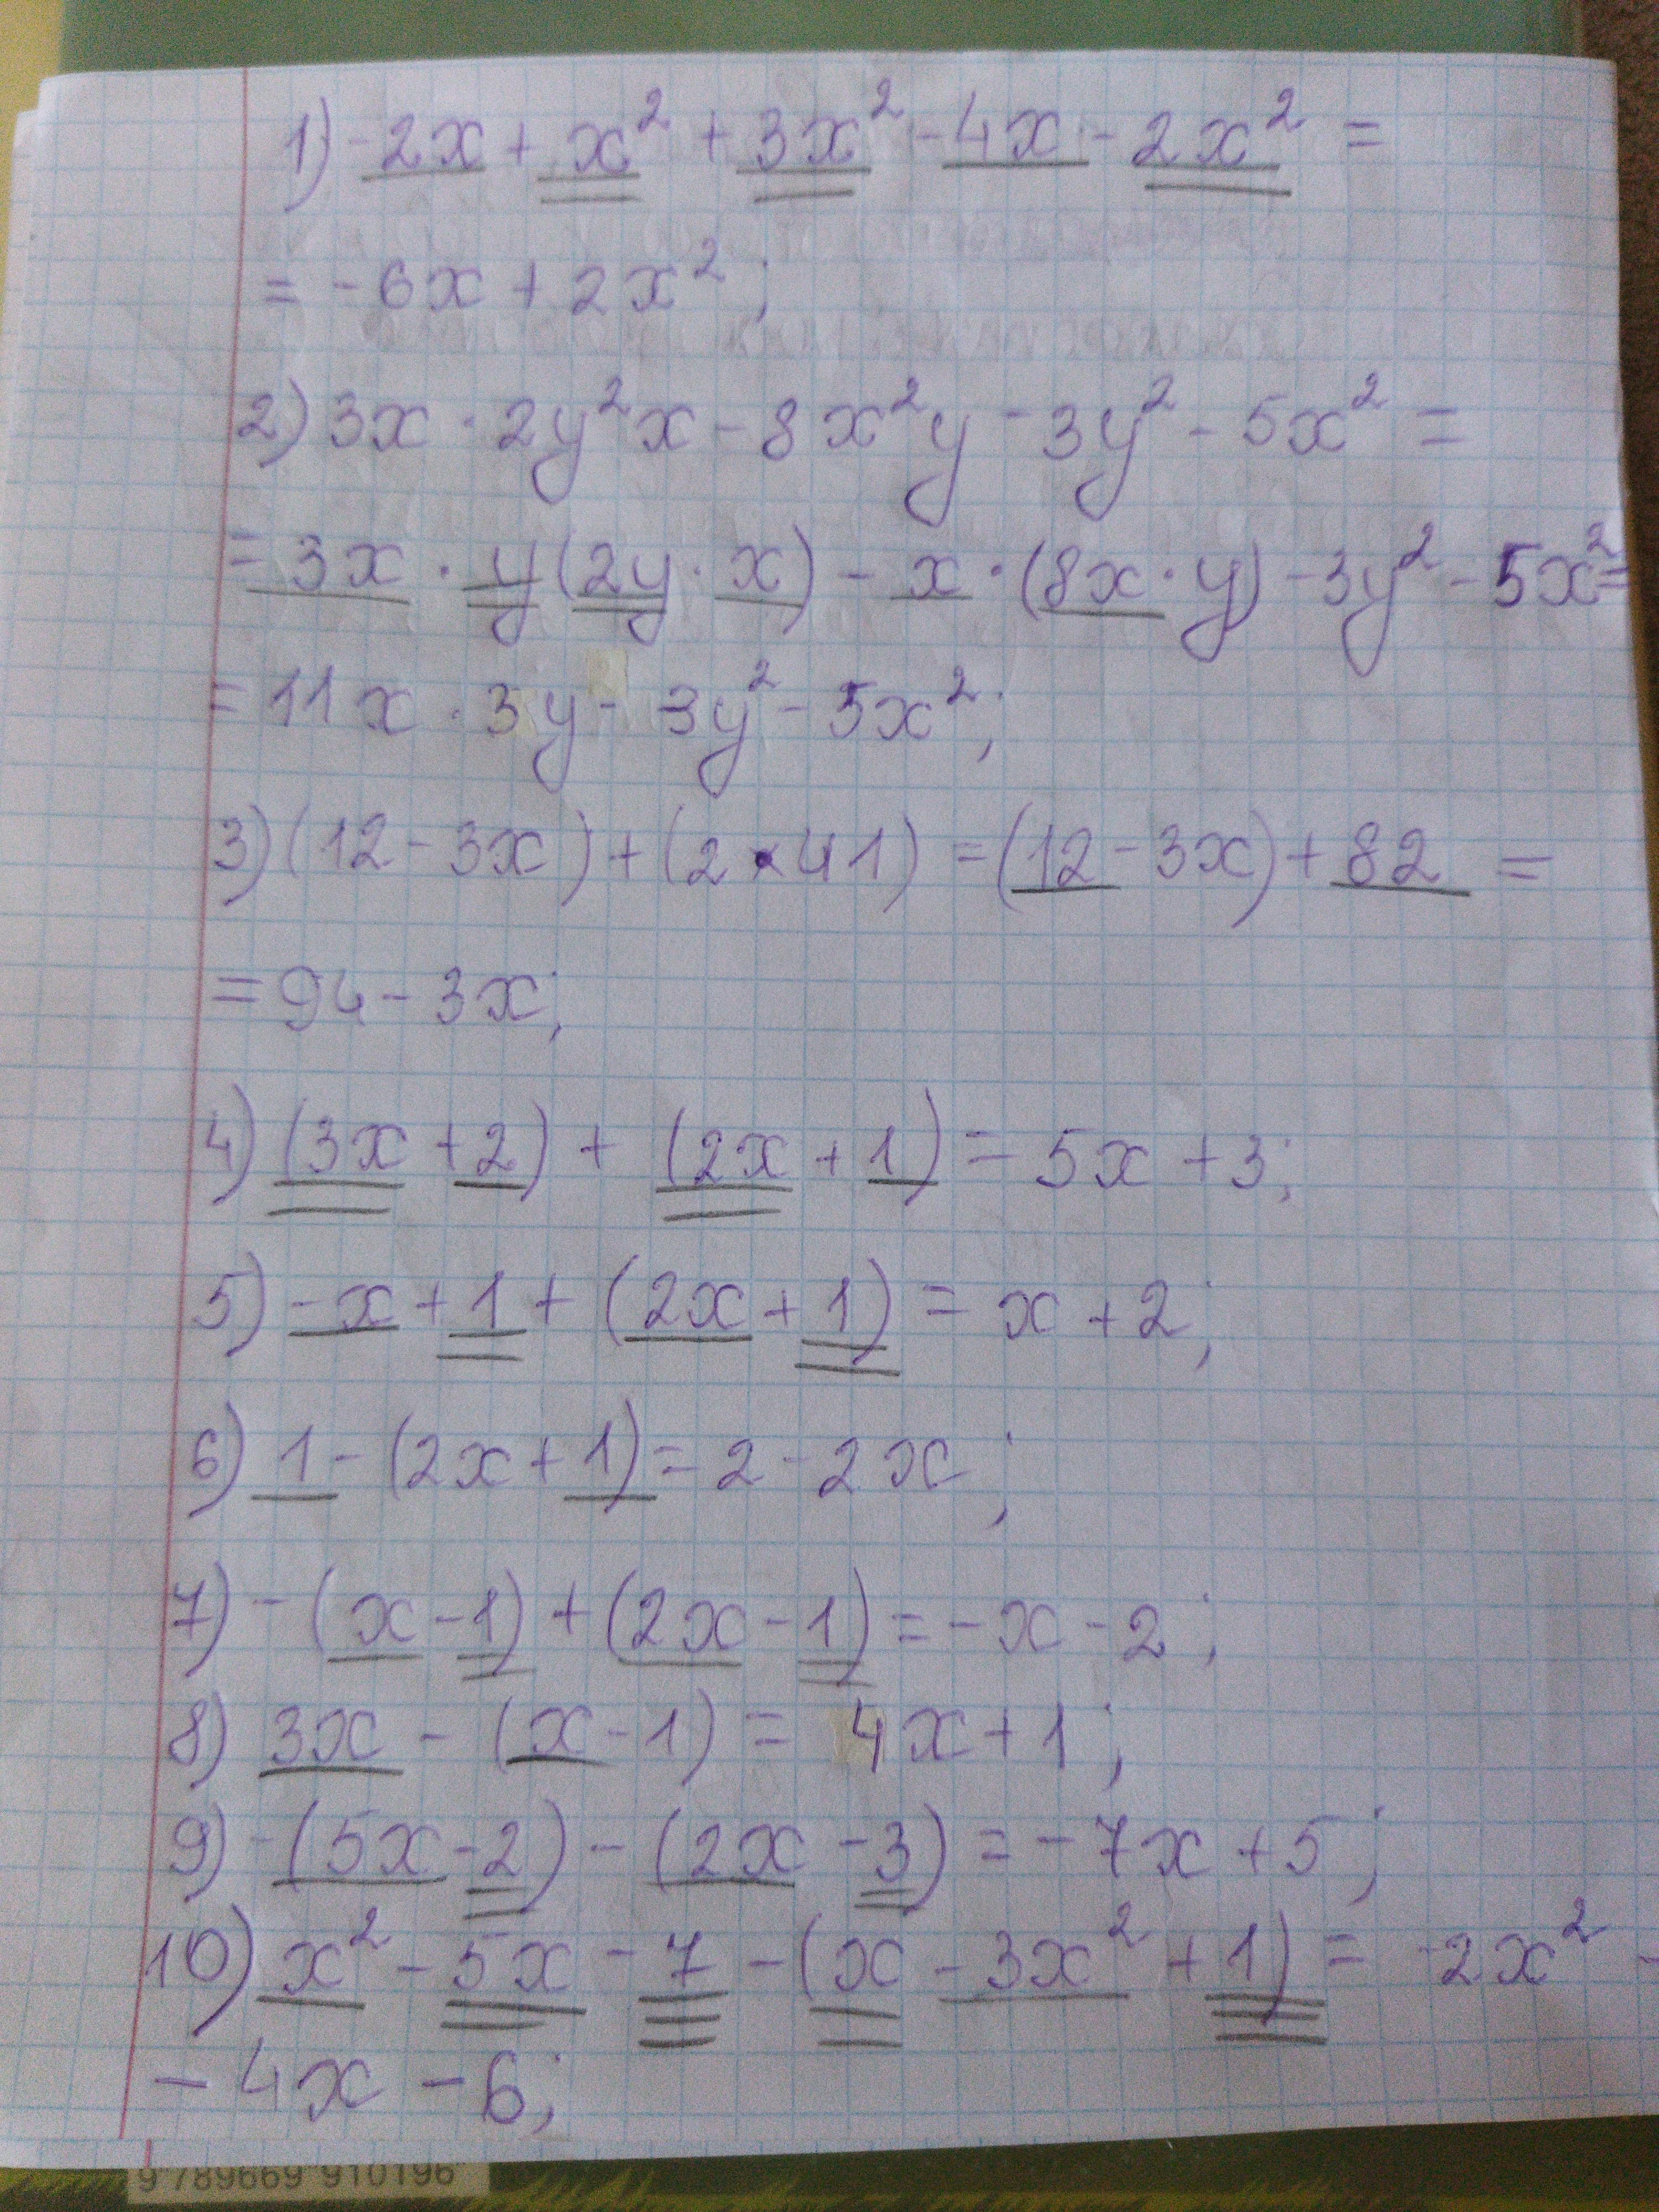 1) -2x + x² + 3x² - 4x - 2x² =
= -6x + 2x² ;
2) 3x · 2y²x - 8x²y - 3y² - 5x² =
= 3x · y(2y · x) - x · (8x · y) - 3y² - 5x² =
= 11x · 3y - 3y² - 5x² ;
3) (12 - 3x) + (2 · 41) = (12 - 3x) + 82 =
= 94 - 3x;
4) (3x + 2) + (2x + 1) = 5x + 3;
5) -x + 1 + (2x + 1) = x + 2;
6) 1 - (2x + 1) = 2 - 2x ;
7) -(x - 1) + (2x - 1) = -x - 2 ;
8) 3x - (x - 1) = 4x + 1 ;
9) -(5x - 2) - (2x - 3) = -7x + 5 ;
10) x² - 5x - 7 - (x - 3x² + 1) = -2x² -
- 4x - 6;
9 789669 910196